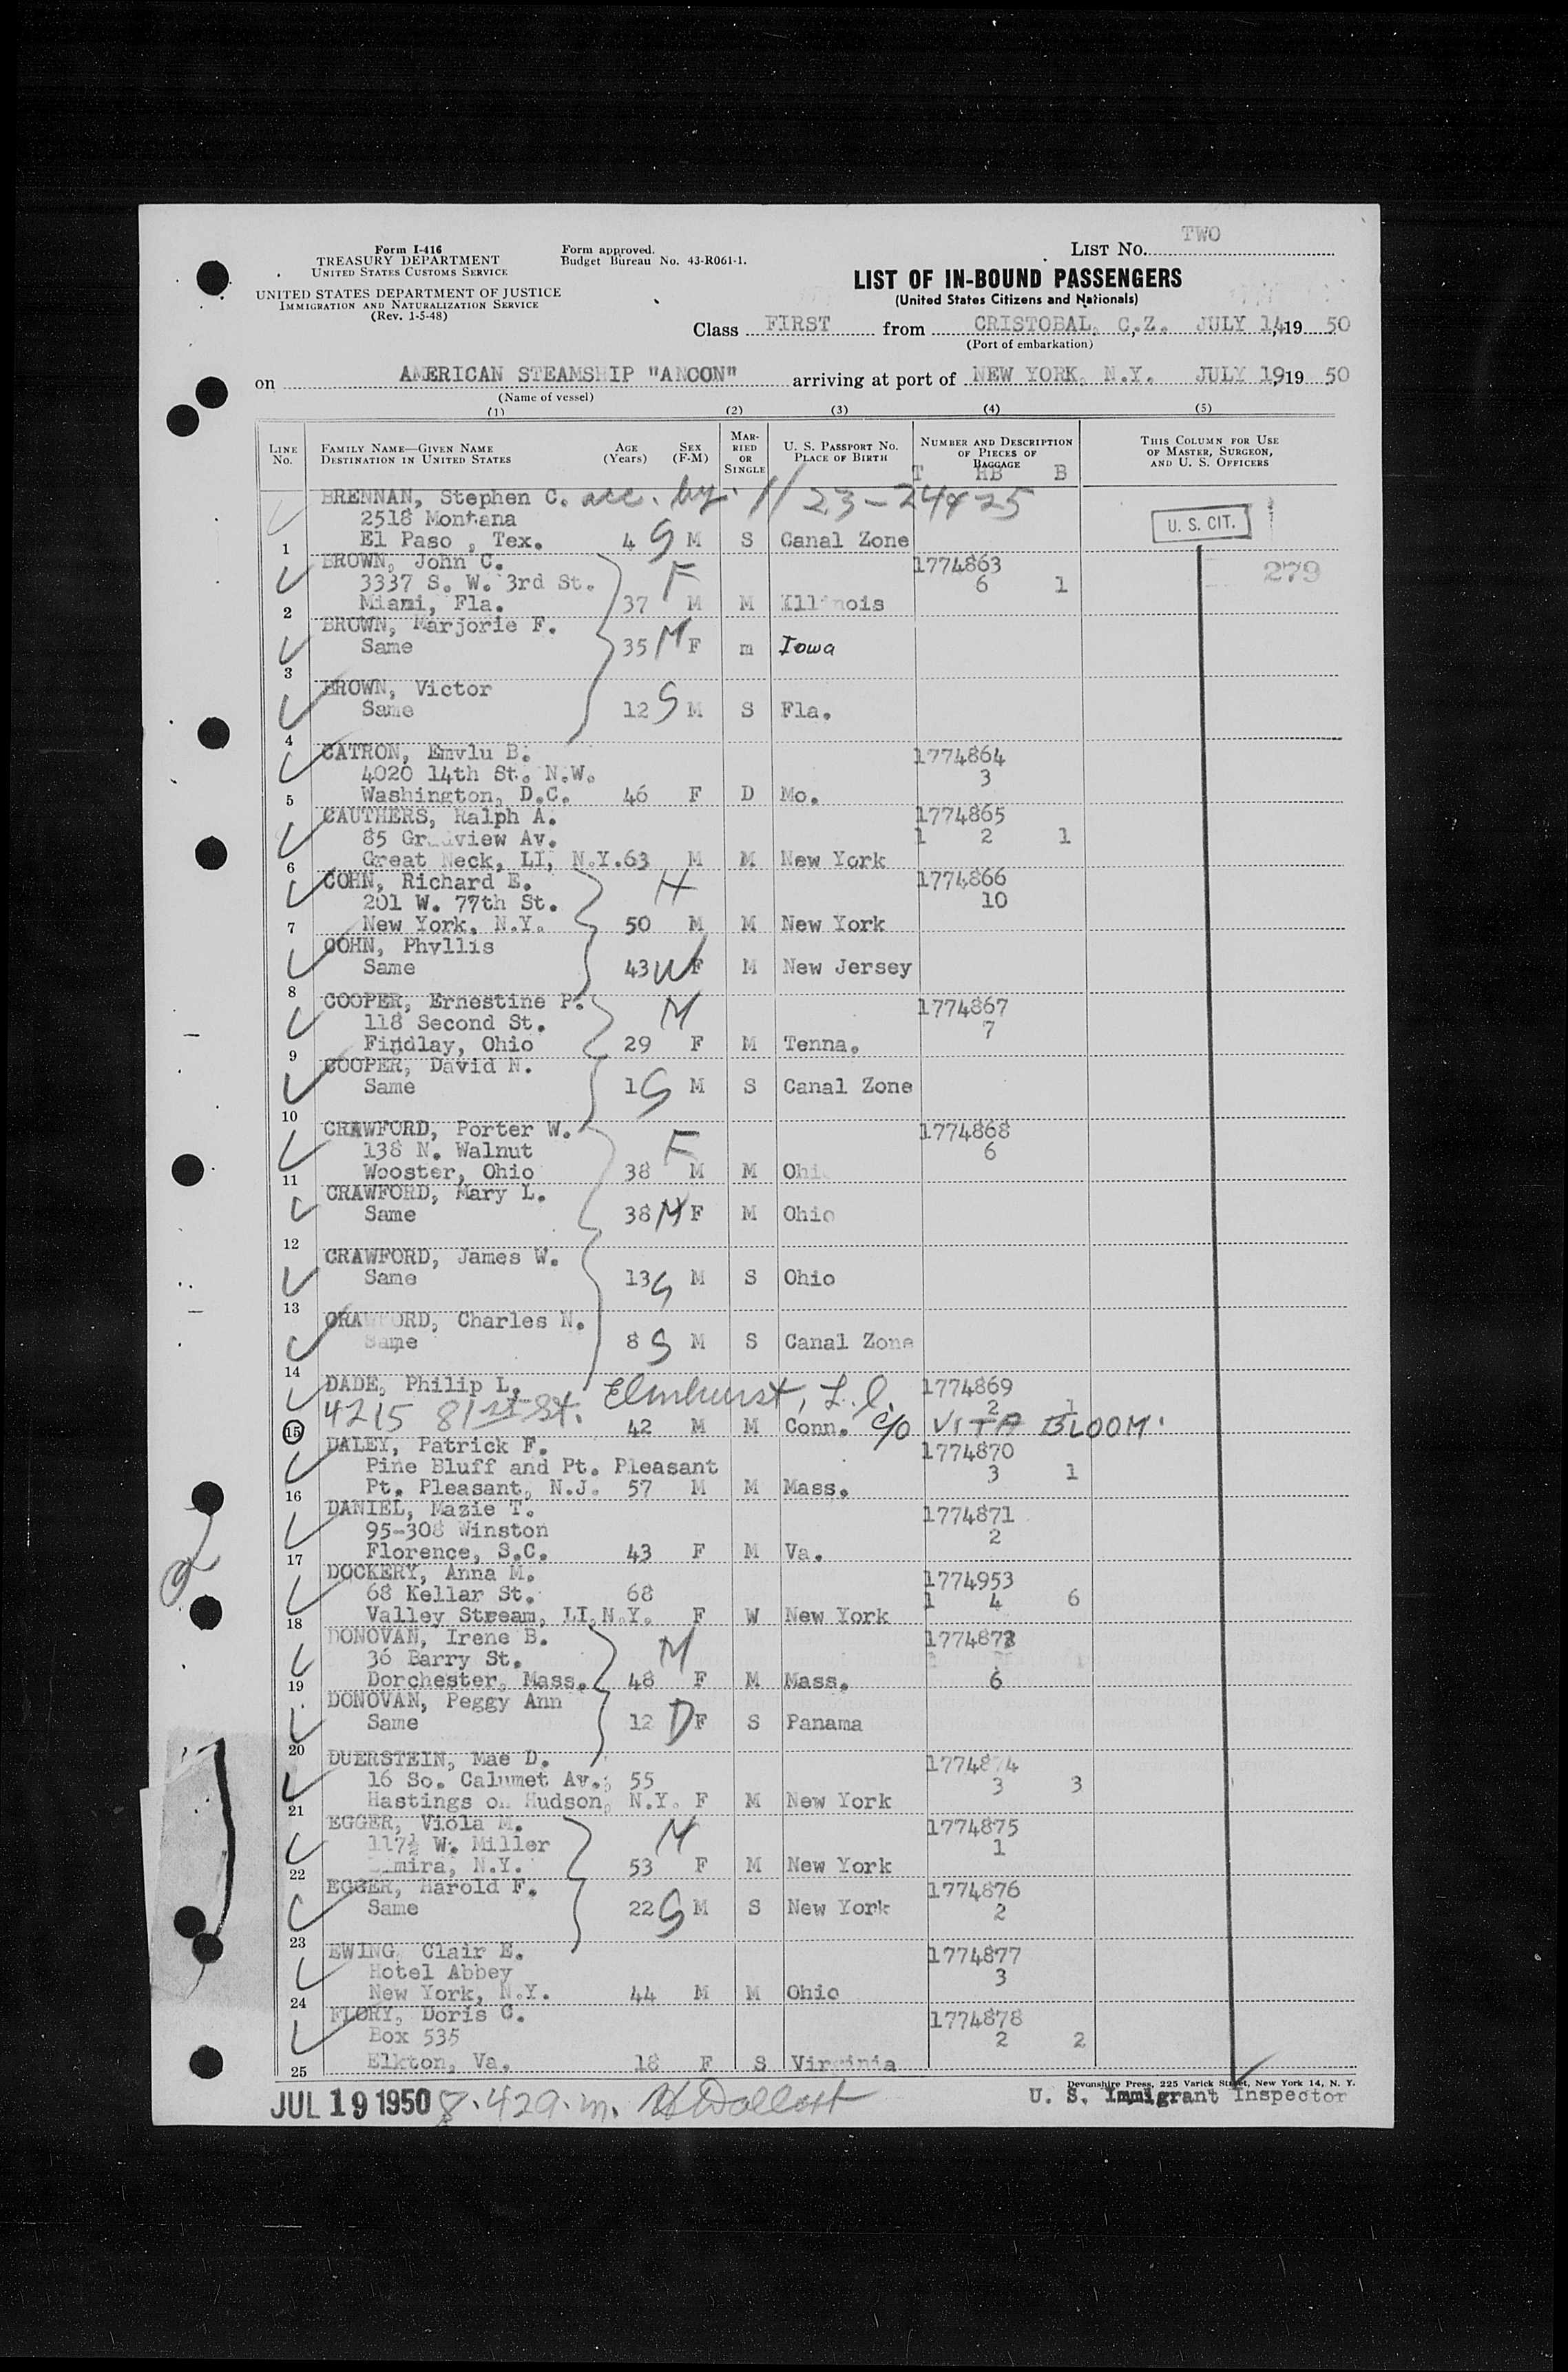 Form I-416
TREASURY DEPARTMENT
UNITED STATES CUSTOMS SERVICE
UNITED STATES DEPARTMENT OF JUSTICE
IMMIGRATION AND NATURALIZATION SERVICE
(Rev. 1-5-48)
Form approved.
Budget Bureau No. 43-R061-1.
LIST NO. TWO
LIST OF IN-BOUND PASSENGERS
(United States Citizens and Nationals)
Class FIRST from CRISTOBAL, C.Z. JULY 14, 19 50
(Port of embarkation)
on AMERICAN STEAMSHIP "ANCON" arriving at port of NEW YORK, N.Y. JULY 19 19 50
(Name of vessel)
(1) (2) (3) (4) (5)
LINE NO. FAMILY NAME—GIVEN NAME DESTINATION IN UNITED STATES AGE (Years) SEX (F-M) MARRIED OR SINGLE U. S. PASSPORT NO. PLACE OF BIRTH NUMBER AND DESCRIPTION OF PIECES OF BAGGAGE THIS COLUMN FOR USE OF MASTER, SURGEON, AND U. S. OFFICERS
T HB B
BRENNAN, Stephen C. acc. by. 11 23-24+25
2518 Montana U. S. CIT.
1 El Paso , Tex. 4 S M S Canal Zone
BROWN, John C. 1774863 279
3337 S. W. 3rd St. F 6 1
2 Miami, Fla. 37 M M Illinois
BROWN, Marjorie F.
Same 35 M F m Iowa
3
BROWN, Victor
Same 12 S M S Fla.
4
CATRON, Emvlu B. 1774864
4020 14th St. N.W. 3
5 Washington, D.C. 46 F D Mo.
CAUTHERS, Ralph A. 1774865
85 view Av. 1 2 1
6 Great Neck, LI, N.Y. 63 M M New York
COHN, Richard E. H 1774866
201 W. 77th St. 10
7 New York, N.Y. 50 M M New York
COHN, Phyllis
Same 43 W F M New Jersey
8
COOPER, Ernestine P. M 1774867
118 Second St. 7
9 Findlay, Ohio 29 F M Tenna.
COOPER, David N.
Same 1 S M S Canal Zone
10
CRAWFORD, Porter W. F 1774868
138 N. Walnut 6
11 Wooster, Ohio 38 M M Ohio
CRAWFORD, Mary L.
Same 38 M F M Ohio
12
CRAWFORD, James W.
Same 13 S M S Ohio
13
CRAWFORD, Charles N.
Same 8 S M S Canal Zone
14
DADE, Philip L. Elmhurst, L.I. 1774869
4215 81st St. 2 1
15 42 M M Conn. c/o VITA BLOOM.
DALEY, Patrick F. 1774870
Pine Bluff and Pt. Pleasant 3 1
16 Pt. Pleasant, N.J. 57 M M Mass.
DANIEL, Mazie T. 1774871
95-308 Winston 2
17 Florence, S.C. 43 F M Va.
DOCKERY, Anna M. 1774953
68 Kellar St. 68 1 4 6
18 Valley Stream, LI.N.Y. F W New York
DONOVAN, Irene B. M
36 Barry St.
19 Dorchester, Mass. 48 F M Mass. 6
DONOVAN, Peggy Ann
Same 12 D F S Panama
20
DUERSTEIN, Mae D. 1774874
16 So. Calumet Av., 55 3 3
21 Hastings on Hudson, N.Y. F M New York
EGGER, Viola M. M 1774875
117½ W. Miller 1
22 Elmira, N.Y. 53 F M New York
EGGER, Harold F. 1774876
Same 22 S M S New York 2
23
EWING, Clair E. 1774877
Hotel Abbey 3
24 New York, N.Y. 44 M M Ohio
FLORY, Doris C. 1774878
Box 535 2 2
25 Elkton, Va. 18 F S Virginia
Devonshire Press, 225 Varick Street, New York 14, N. Y.
JUL 19 1950
U. S. Immigrant Inspector